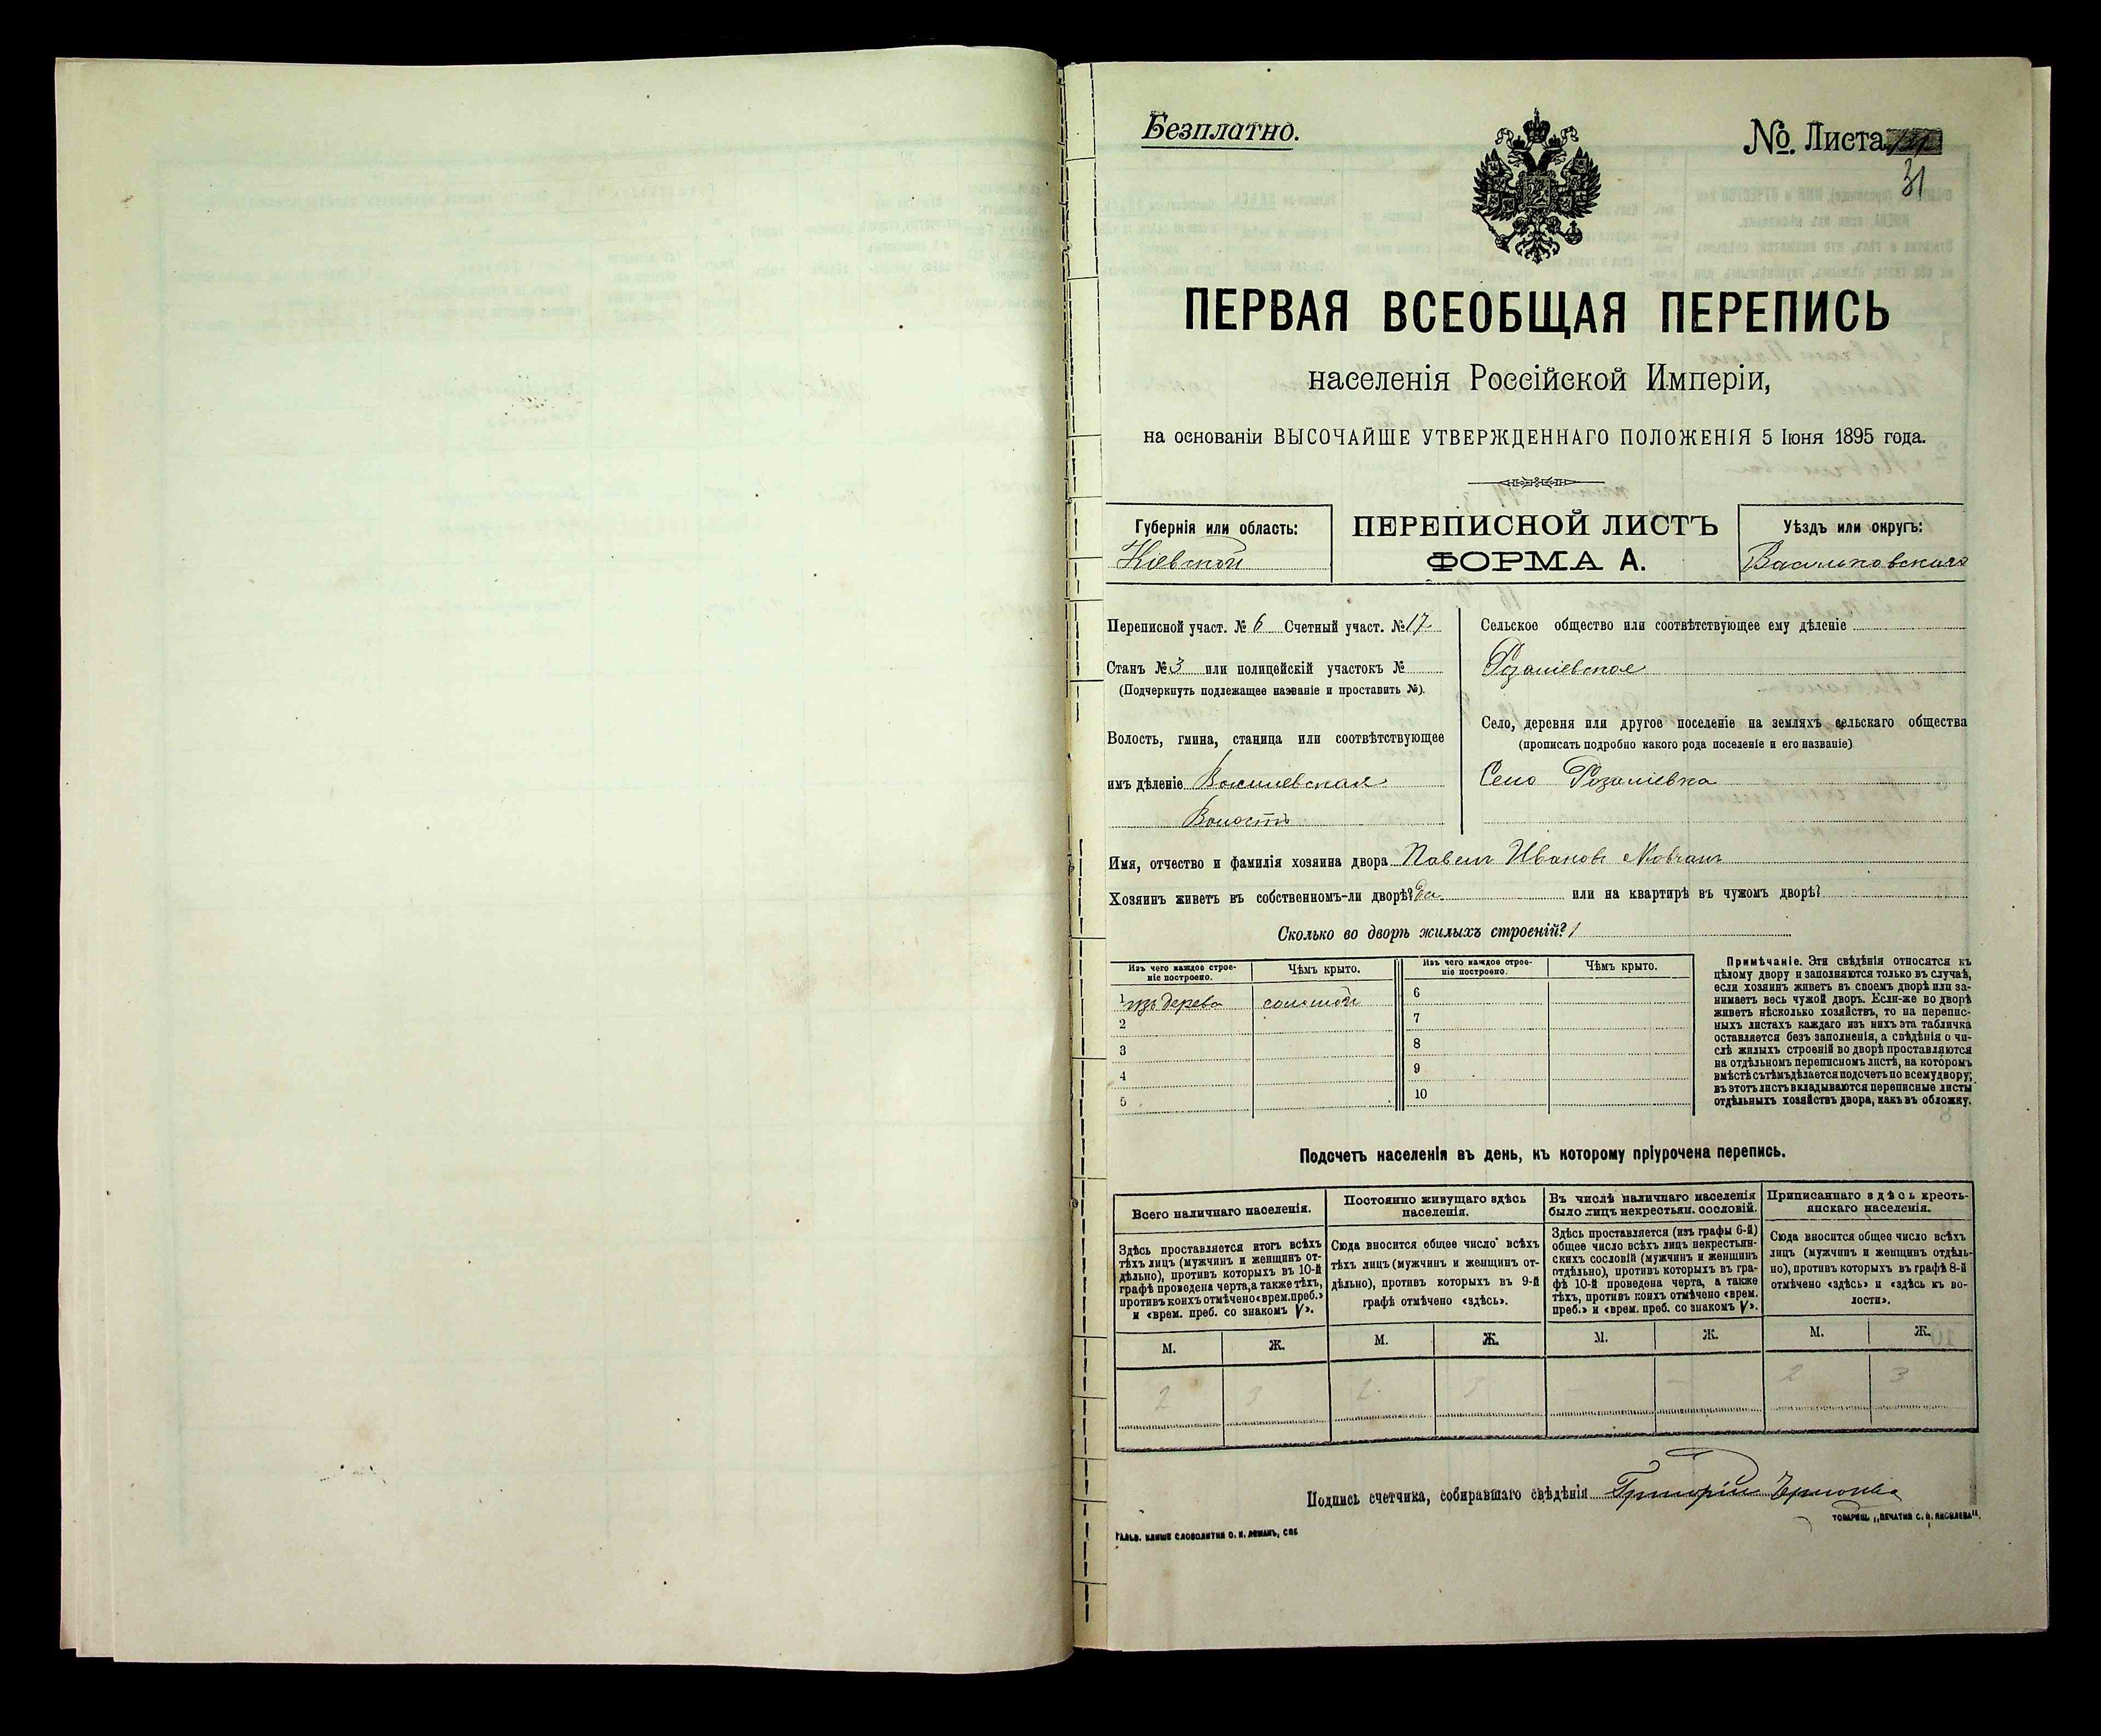 Безплатно.
№. Листа
31
ПЕРВАЯ ВСЕОБЩАЯ ПЕРЕПИСЬ
населенія Россійской Имперіи,
на основаніи ВЫСОЧАЙШЕ УТВЕРЖДЕННАГО ПОЛОЖЕНІЯ 5 Іюня 1895 года.
Губернія или область:
Кіевской
ПЕРЕПИСНОЙ ЛИСТЪ
ФОРМА А.
Уѣздъ или округъ:
Васильковскаго
Переписной участ. № 6 Счетный участ. № 17
Станъ № 3 или полицейскій участокъ №
(Подчеркнуть подлежащее названіе и проставить №).
Волость, гмина, станица или соотвѣтствующее
имъ дѣленіе
Волость
Сельское общество или соотвѣтствующее ему дѣленіе
Розаліевское
Село, деревня или другое поселеніе на земляхъ сельскаго общества
(прописать подробно какого рода поселеніе и его названіе)
Село Розаліевка
Имя, отчество и фамилія хозяина двора Павелъ Ивановъ Мовчанъ
Хозяинъ живетъ въ собственномъ-ли дворѣ? Да или на квартирѣ въ чужомъ дворѣ?
Сколько во дворѣ жилыхъ строеній? 1
Изъ чего каждое строе-
ніе построено.
Чѣмъ крыто.
Изъ чего каждое строе-
ніе построено.
Чѣмъ крыто.
1 изъ дерева соломой
2
3
4
5
6
7
8
9
10
Примѣчаніе. Эти свѣдѣнія относятся къ
цѣлому двору и заполняются только въ случаѣ,
если хозяинъ живетъ въ своемъ дворѣ или за-
нимаетъ весь чужой дворъ. Если-же во дворѣ
живетъ нѣсколько хозяйствъ, то на перепис-
ныхъ листахъ каждаго изъ нихъ эта табличка
оставляется безъ заполненія, а свѣдѣнія о чи-
слѣ жилыхъ строеній во дворѣ проставляются
на отдѣльномъ переписномъ листѣ, на которомъ
вмѣстѣ съ тѣмъ дѣлается подсчетъ по всему двору;
въ этотъ листъ вкладываются переписные листы
отдѣльныхъ хозяйствъ двора, какъ въ обложку.
Подсчетъ населенія въ день, къ которому пріурочена перепись.
Всего наличнаго населенія.
Здѣсь проставляется итогъ всѣхъ
тѣхъ лицъ (мужчинъ и женщинъ от-
дѣльно), противъ которыхъ въ 10-й
графѣ проведена черта, а также тѣхъ,
противъ коихъ отмѣчено «врем. преб.»
и «врем. преб. со знакомъ V».
Постоянно живущаго здѣсь
населенія.
Сюда вносится общее число всѣхъ
тѣхъ лицъ (мужчинъ и женщинъ от-
дѣльно), противъ которыхъ въ 9-й
графѣ отмѣчено «здѣсь».
Въ числѣ наличнаго населенія
было лицъ некрестьян. сословій.
Здѣсь проставляется (изъ графы 6-й)
общее число всѣхъ лицъ некрестьян-
скихъ сословій (мужчинъ и женщинъ
отдѣльно), противъ которыхъ въ гра-
фѣ 10-й проведена черта, а также
тѣхъ, противъ коихъ отмѣчено «врем.
преб.» и «врем. преб. со знакомъ V».
Приписаннаго здѣсь кресть-
янскаго населенія.
Сюда вносится общее число всѣхъ
лицъ (мужчинъ и женщинъ отдѣль-
но), противъ которыхъ въ графѣ 8-й
отмѣчено «здѣсь» и «здѣсь къ во-
лости».
М. Ж. М. Ж. М. Ж. М. Ж.
2 3 2 3 — — 2 3
Подпись счетчика, собиравшаго свѣдѣнія Григорій
ГАЛЬВ. КЛИШЕ СЛОВОЛИТНИ О. И. ЛЕМАНЪ, СПБ
ТОВАРИЩ. „ПЕЧАТНЯ С. П. ЯКОВЛЕВА".